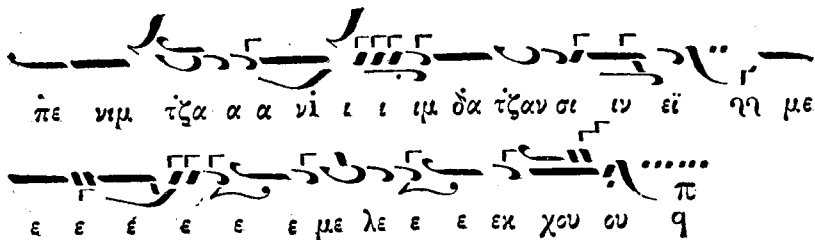 π̇ε νιμ τζα α α νὶ ι ι ιμ δα τζαν σι ιν εϊ γγ με
ε ε έ ε ε ε με λε ε ε εκ χου ου π q